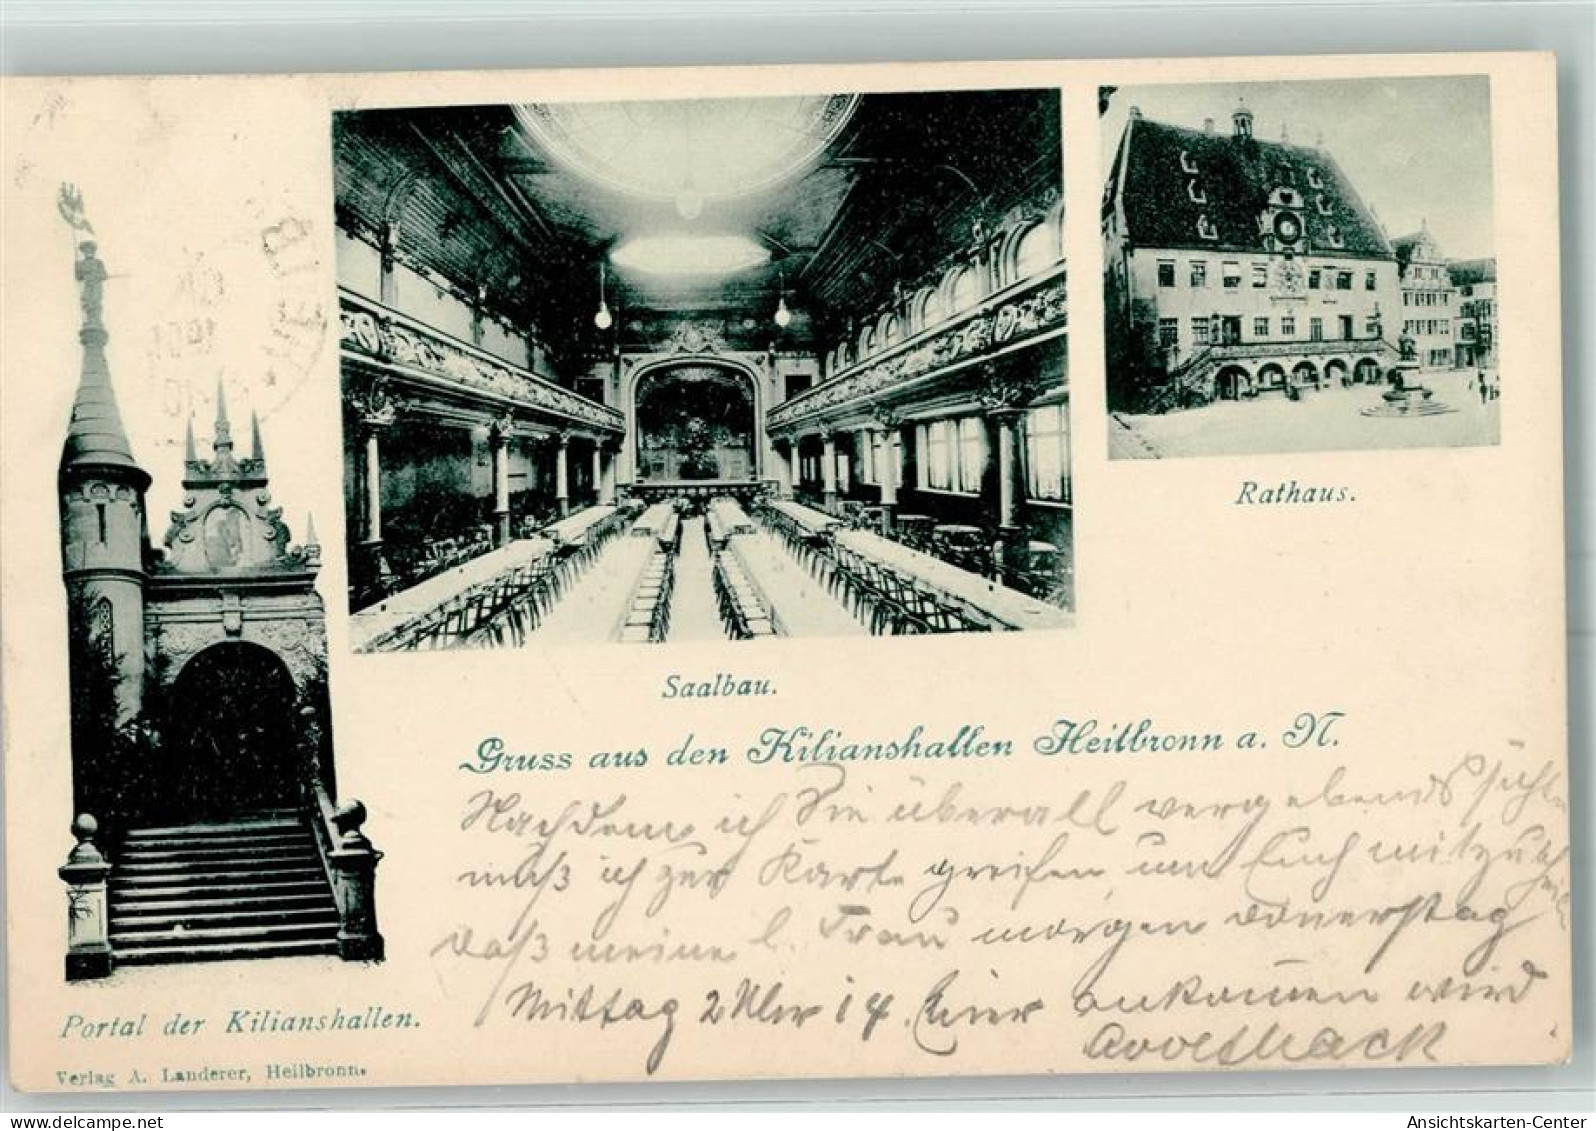 Rathaus.
Saalbau.
Gruss aus den Kilianshallen Heilbronn a. N.
Nachdem ich Sie überall vergebends suchte
muß ich zur Karte greifen um Euch mitzutheilen
daß meine l. Frau morgen Donnerstag
Mittag 2 Uhr 14 hier ankommen wird
Portal der Kilianshallen.
Verlag A. Landerer, Heilbronn.
HEILB
AnsichtsKarten-Center